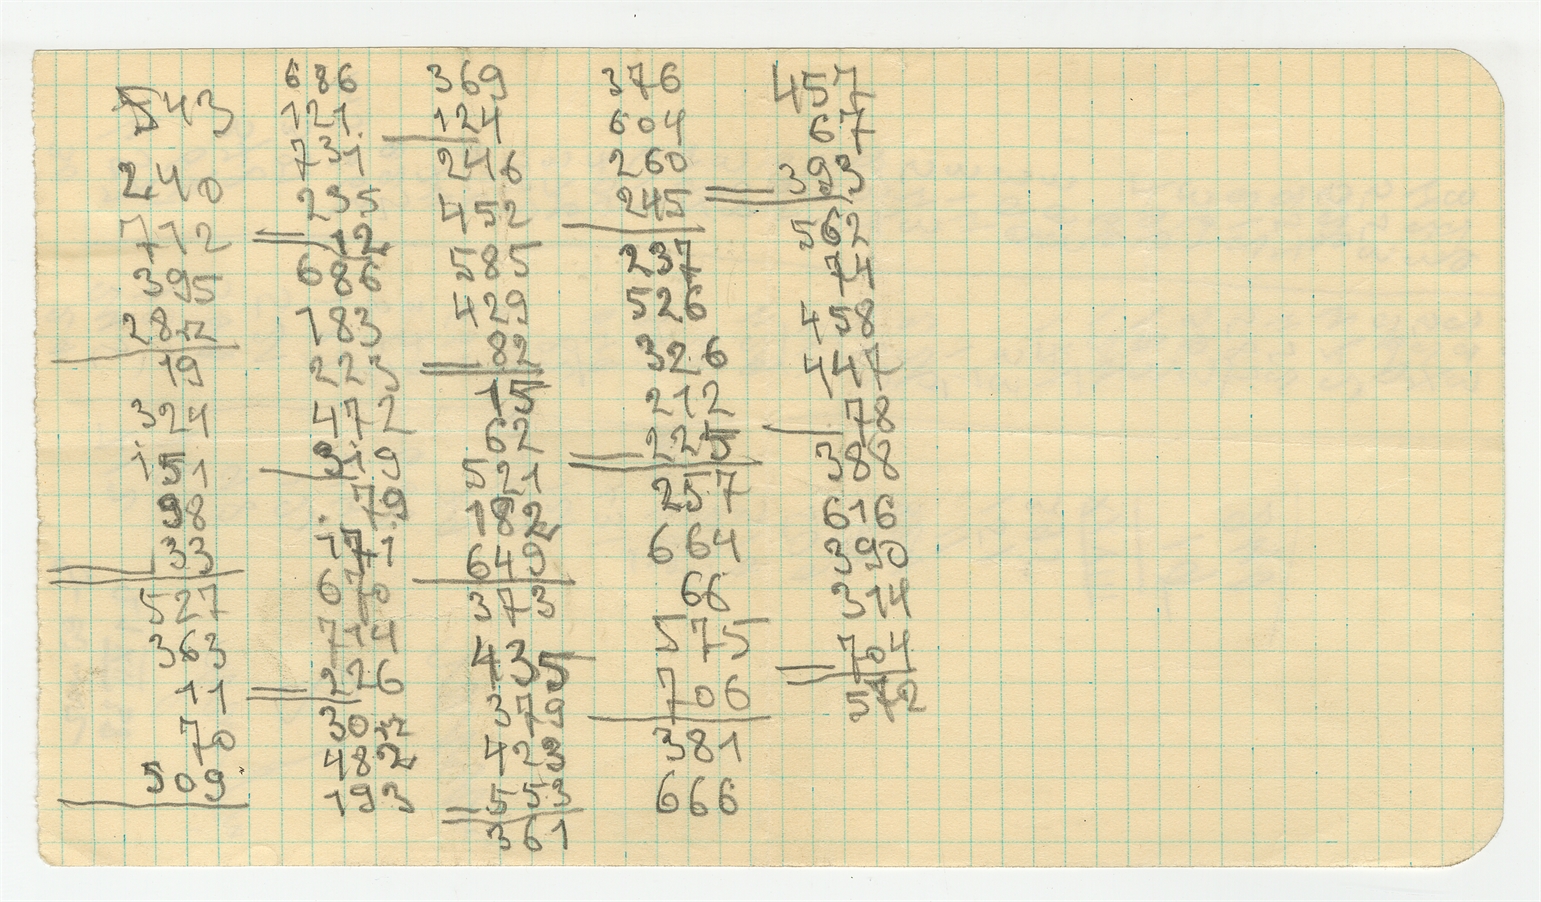 543
240
712
395
282
19
324
151
98
33
527
363
11
70
509
686
121
731
235
12
686
183
223
472
319
79
171
670
714
226
302
482
193
369
124
246
452
585
429
82
15
62
521
182
649
373
435
379
423
553
361
376
604
260
245
237
526
326
212
225
257
664
66
575
706
381
666
457
67
393
562
74
458
447
78
388
616
390
314
704
572